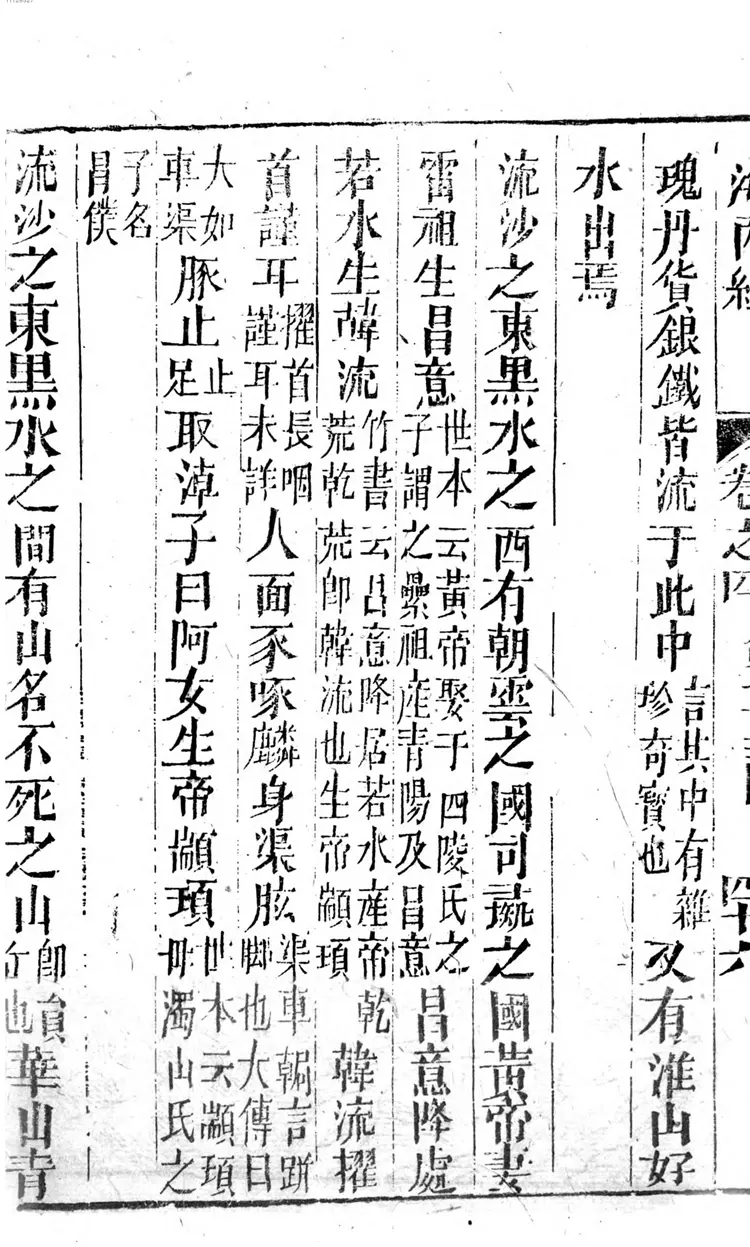 瑰丹貨銀鐵皆流于此中言其中有雜珍奇寶也又有淮山好
水出焉
流沙之東黑水之西有朝雲之國司彘之國黃帝妻
雷祖生昌意世本云黃帝娶于四陵氏之子謂之纍祖産青陽及昌意昌意降處
若水生韓流竹書云昌意降居若水産帝乾荒乾荒卽韓流也生帝顓頊韓流擢
首謹耳擢首長咽謹耳未詳人面豕啄麟身渠股渠車輞言跰脚也大傳曰
大如車渠豚止止足取淖子曰阿女生帝顓頊世本云顓頊母濁山氏之
子名昌僕
流沙之東黑水之間有山名不死之山卽員丘也華山青